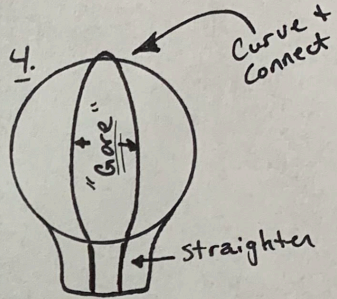 4.
Curve +
Connect
"Gore"
straighten